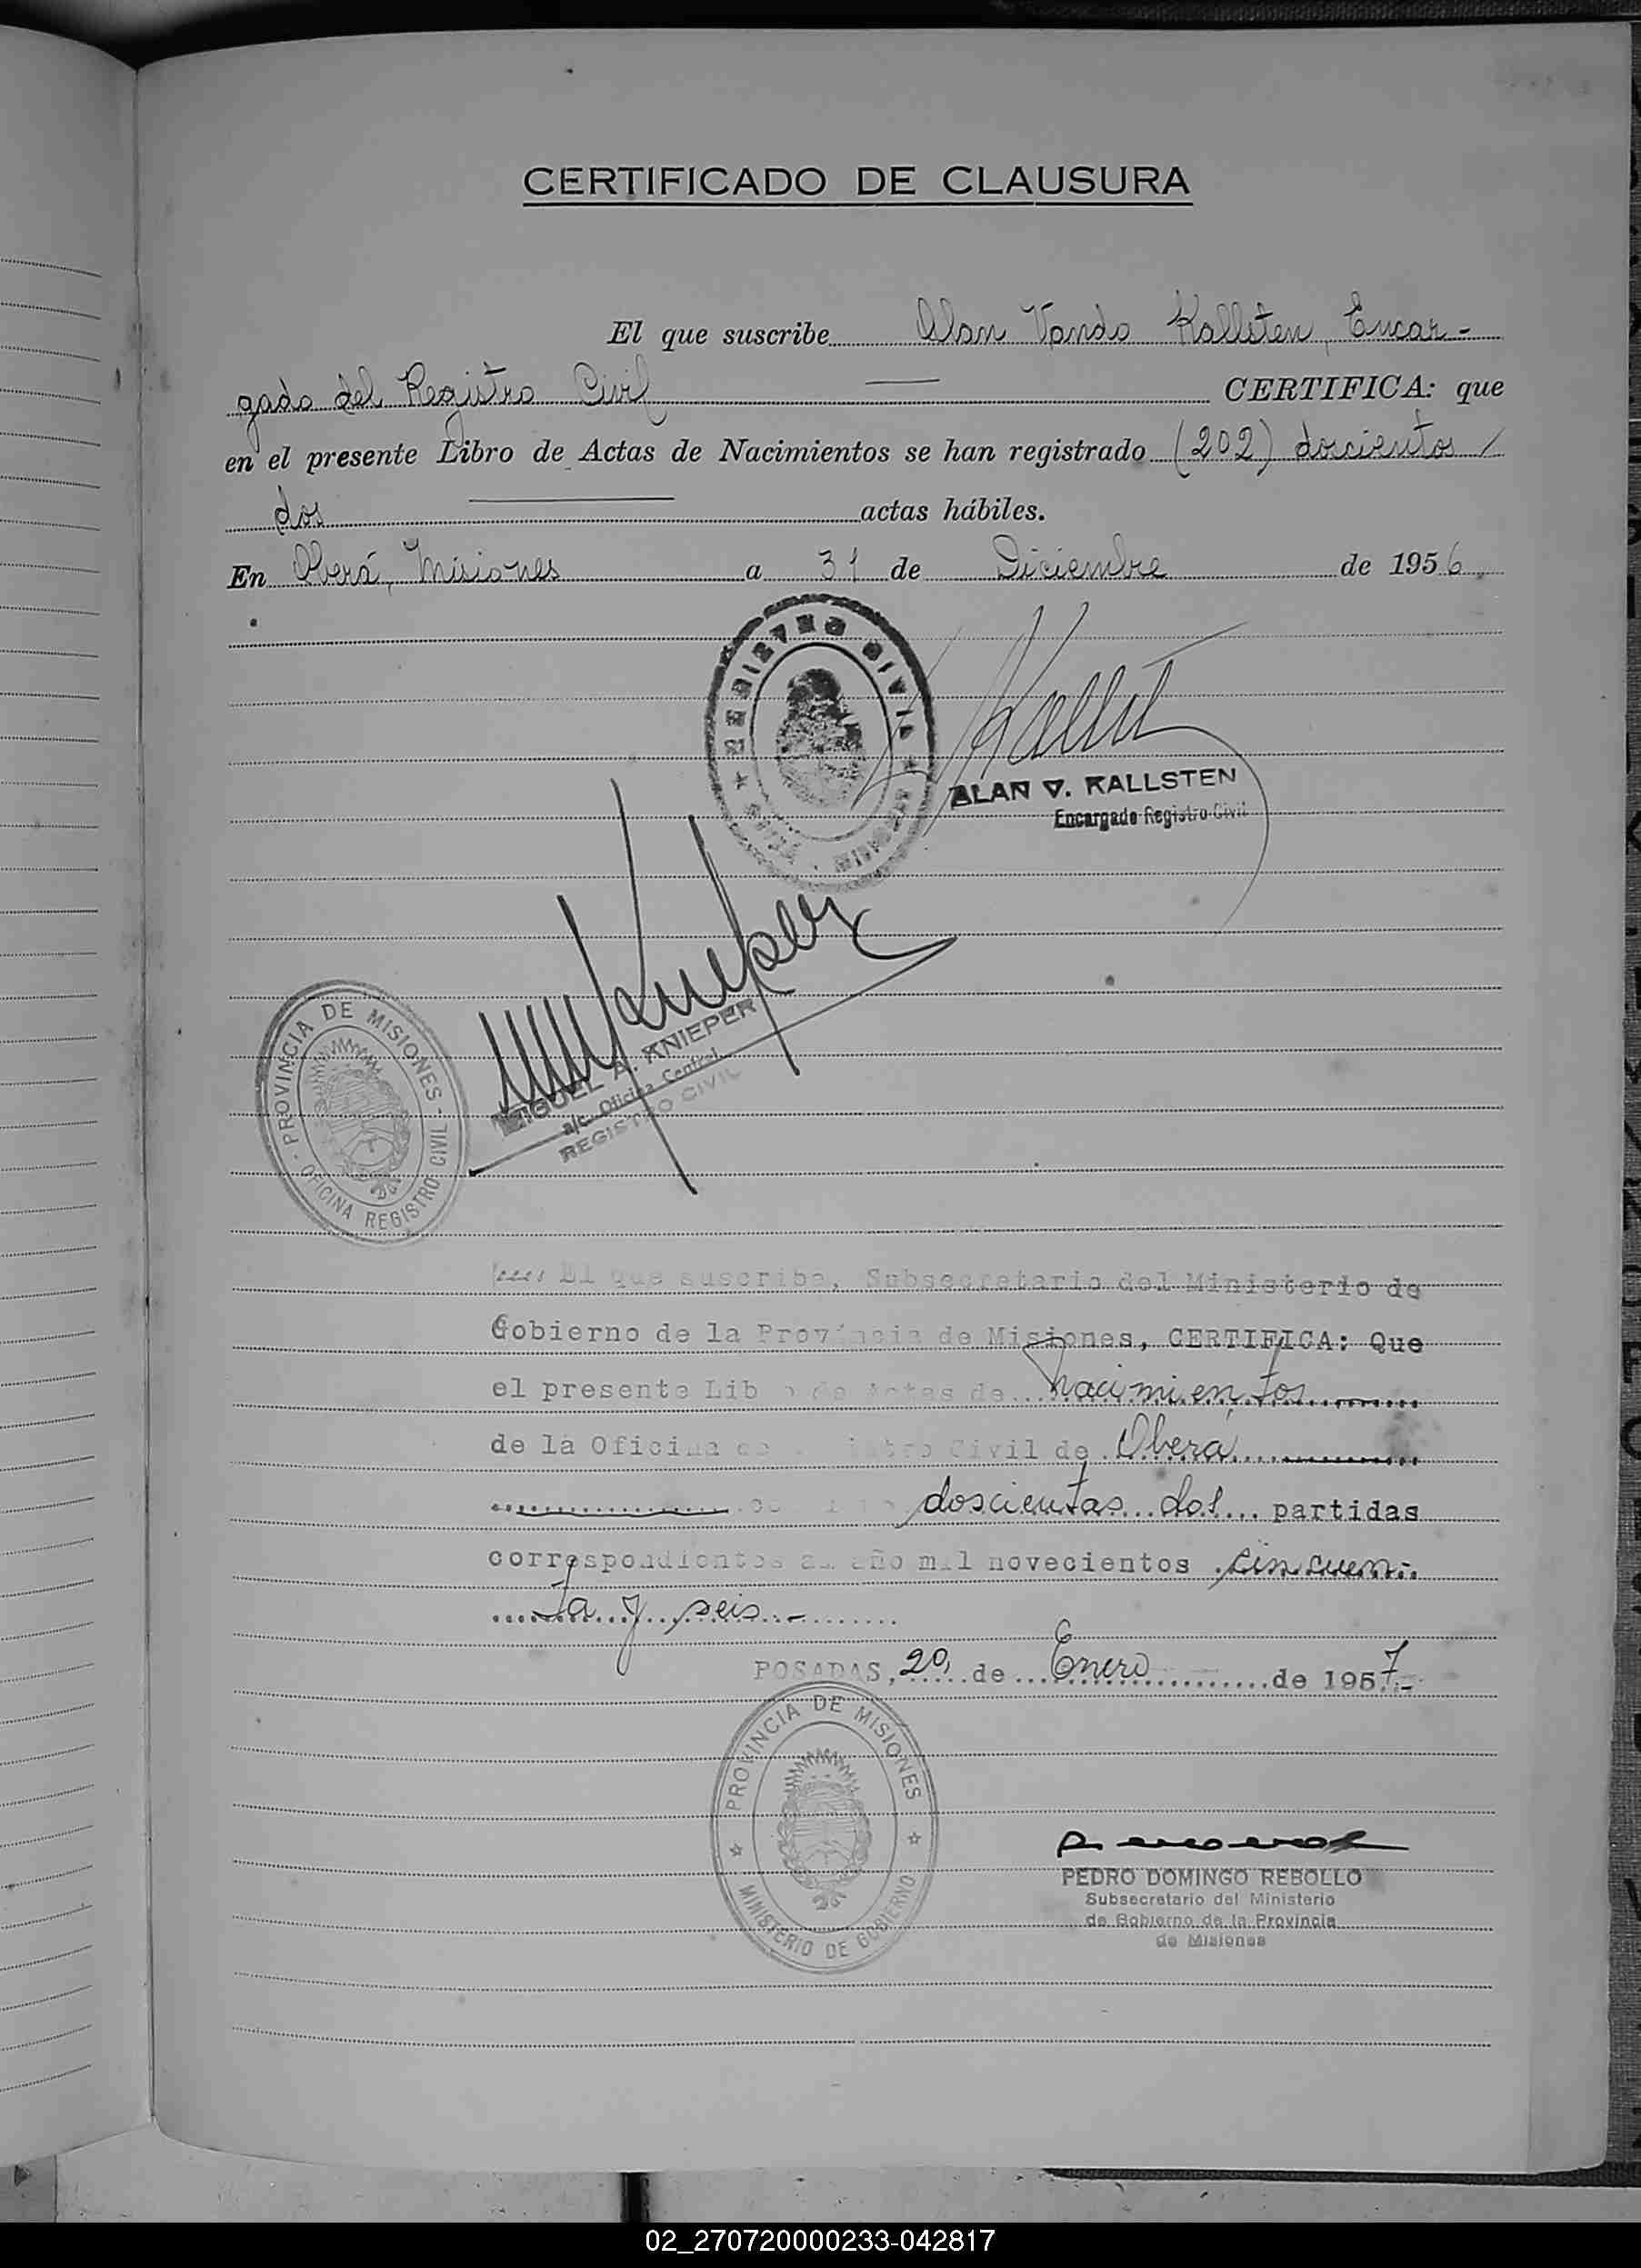 CERTIFICADO DE CLAUSURA
El que suscribe Alan Vando Kallsten, Encar-
gado del Registro Civil CERTIFICA: que
en el presente Libro de Actas de Nacimientos se han registrado (202) doscientos
dos actas hábiles.
En Oberá, Misiones a 31 de Diciembre de 1956
REGISTRO CIVIL
ALAN V. KALLSTEN
Encargado Registro Civil
PROVINCIA DE MISIONES - OFICINA REGISTRO CIVIL
MIGUEL A. KNIEPER
a/c. Oficina Central
REGISTRO CIVIL
El que suscribe, Subsecretario del Ministerio de
Gobierno de la Provincia de Misiones, CERTIFICA: Que
el presente Libro de Actas de nacimientos
de la Oficina de Civil de Oberá
doscientas dos partidas
correspondientes al año mil novecientos cincuen-
ta y seis.-
POSADAS, 20 de Enero de 1957.-
PROVINCIA DE MISIONES
MINISTERIO DE GOBIERNO
PEDRO DOMINGO REBOLLO
Subsecretario del Ministerio
de Gobierno de la Provincia
de Misiones
02_270720000233-042817